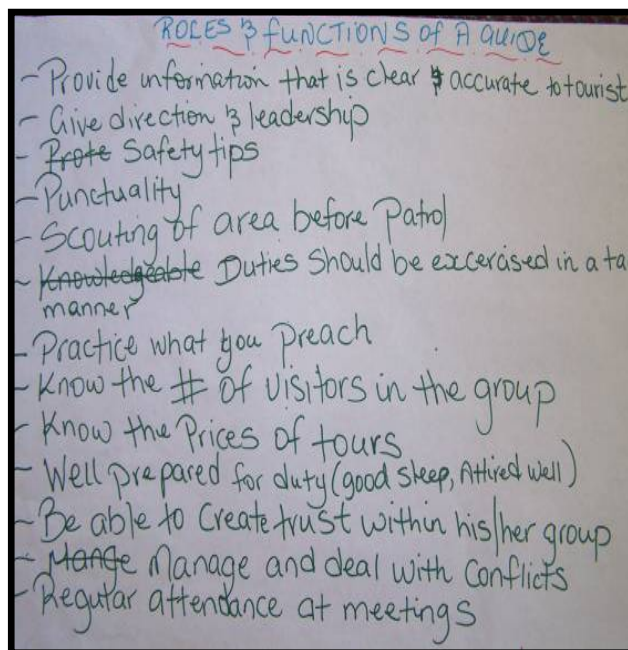 ROLES & FUNCTIONS OF A GUIDE
- Provide information that is clear & accurate to tourist
- Give direction & leadership
- Prote Safety tips
- Punctuality
- Scouting of area before Patrol
- Knowledgeable Duties should be excercised in a
manner
- Practice what you preach
- Know the # of visitors in the group
- Know the Prices of tours
- Well prepared for duty (good sleep, Attired well)
- Be able to Create trust within his/her group
- Mange Manage and deal with Conflicts
- Regular attendance at meetings